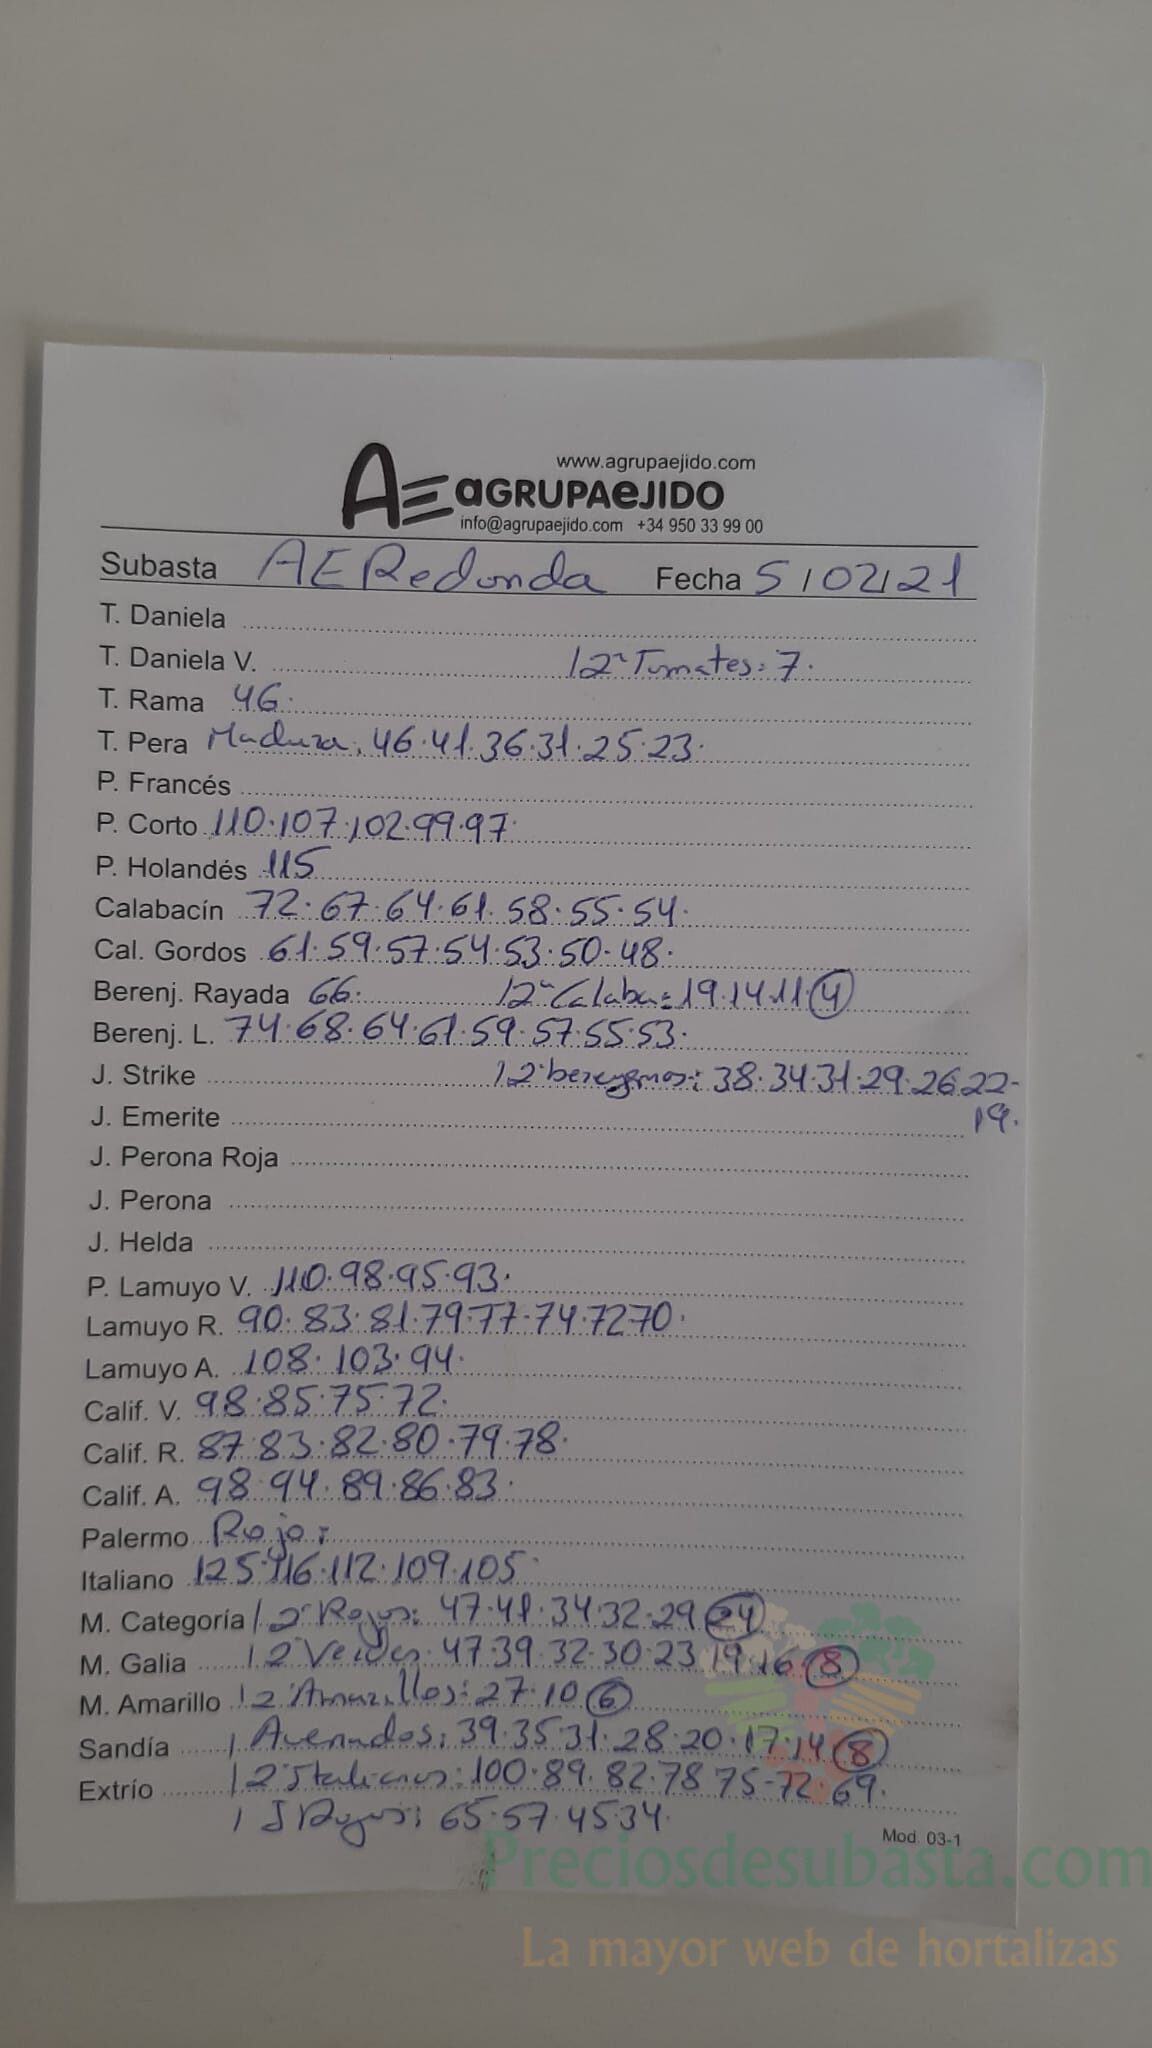 www.agrupaejido.com
AE aGRUPAeJIDO
info@agrupaejido.com +34 950 33 99 00
Subasta AE Redonda Fecha 5/02/21
T. Daniela
T. Daniela V. 12ª Tomates: 7.
T. Rama 46.
T. Pera Madura: 46.41.36.31.25.23.
P. Francés
P. Corto 110.107.102.99.97.
P. Holandés 115
Calabacín 72.67.64.61.58.55.54.
Cal. Gordos 61.59.57.54.53.50.48.
Berenj. Rayada 66. 12ª Calaba: 19.14.11.4
Berenj. L. 74.68.64.61.59.57.55.53.
J. Strike 12ª 38.34.31.29.26.22-
J. Emerite 19.
J. Perona Roja
J. Perona
J. Helda
P. Lamuyo V. 110.98.95.93.
Lamuyo R. 90.83.81.79.77.74.72.70.
Lamuyo A. 108.103.94.
Calif. V. 98.85.75.72.
Calif. R. 87.83.82.80.79.78.
Calif. A. 98.94.89.86.83.
Palermo Rojo:
Italiano 125.116.112.109.105.
M. Categoría 12ª Rojos: 47.41.34.32.29 24
M. Galia 12 Verdes: 47.39.32.30.23.19.16 8
M. Amarillo 12 Amarillos: 27.10 6
Sandía 39.35.31.28.20.17.14 8
Extrío 12 Italianos: 100.89.82.78 75-72.69.
Rojos: 65.57.45.34.
Mod. 03-1
Preciosdesubasta.com
La mayor web de hortalizas